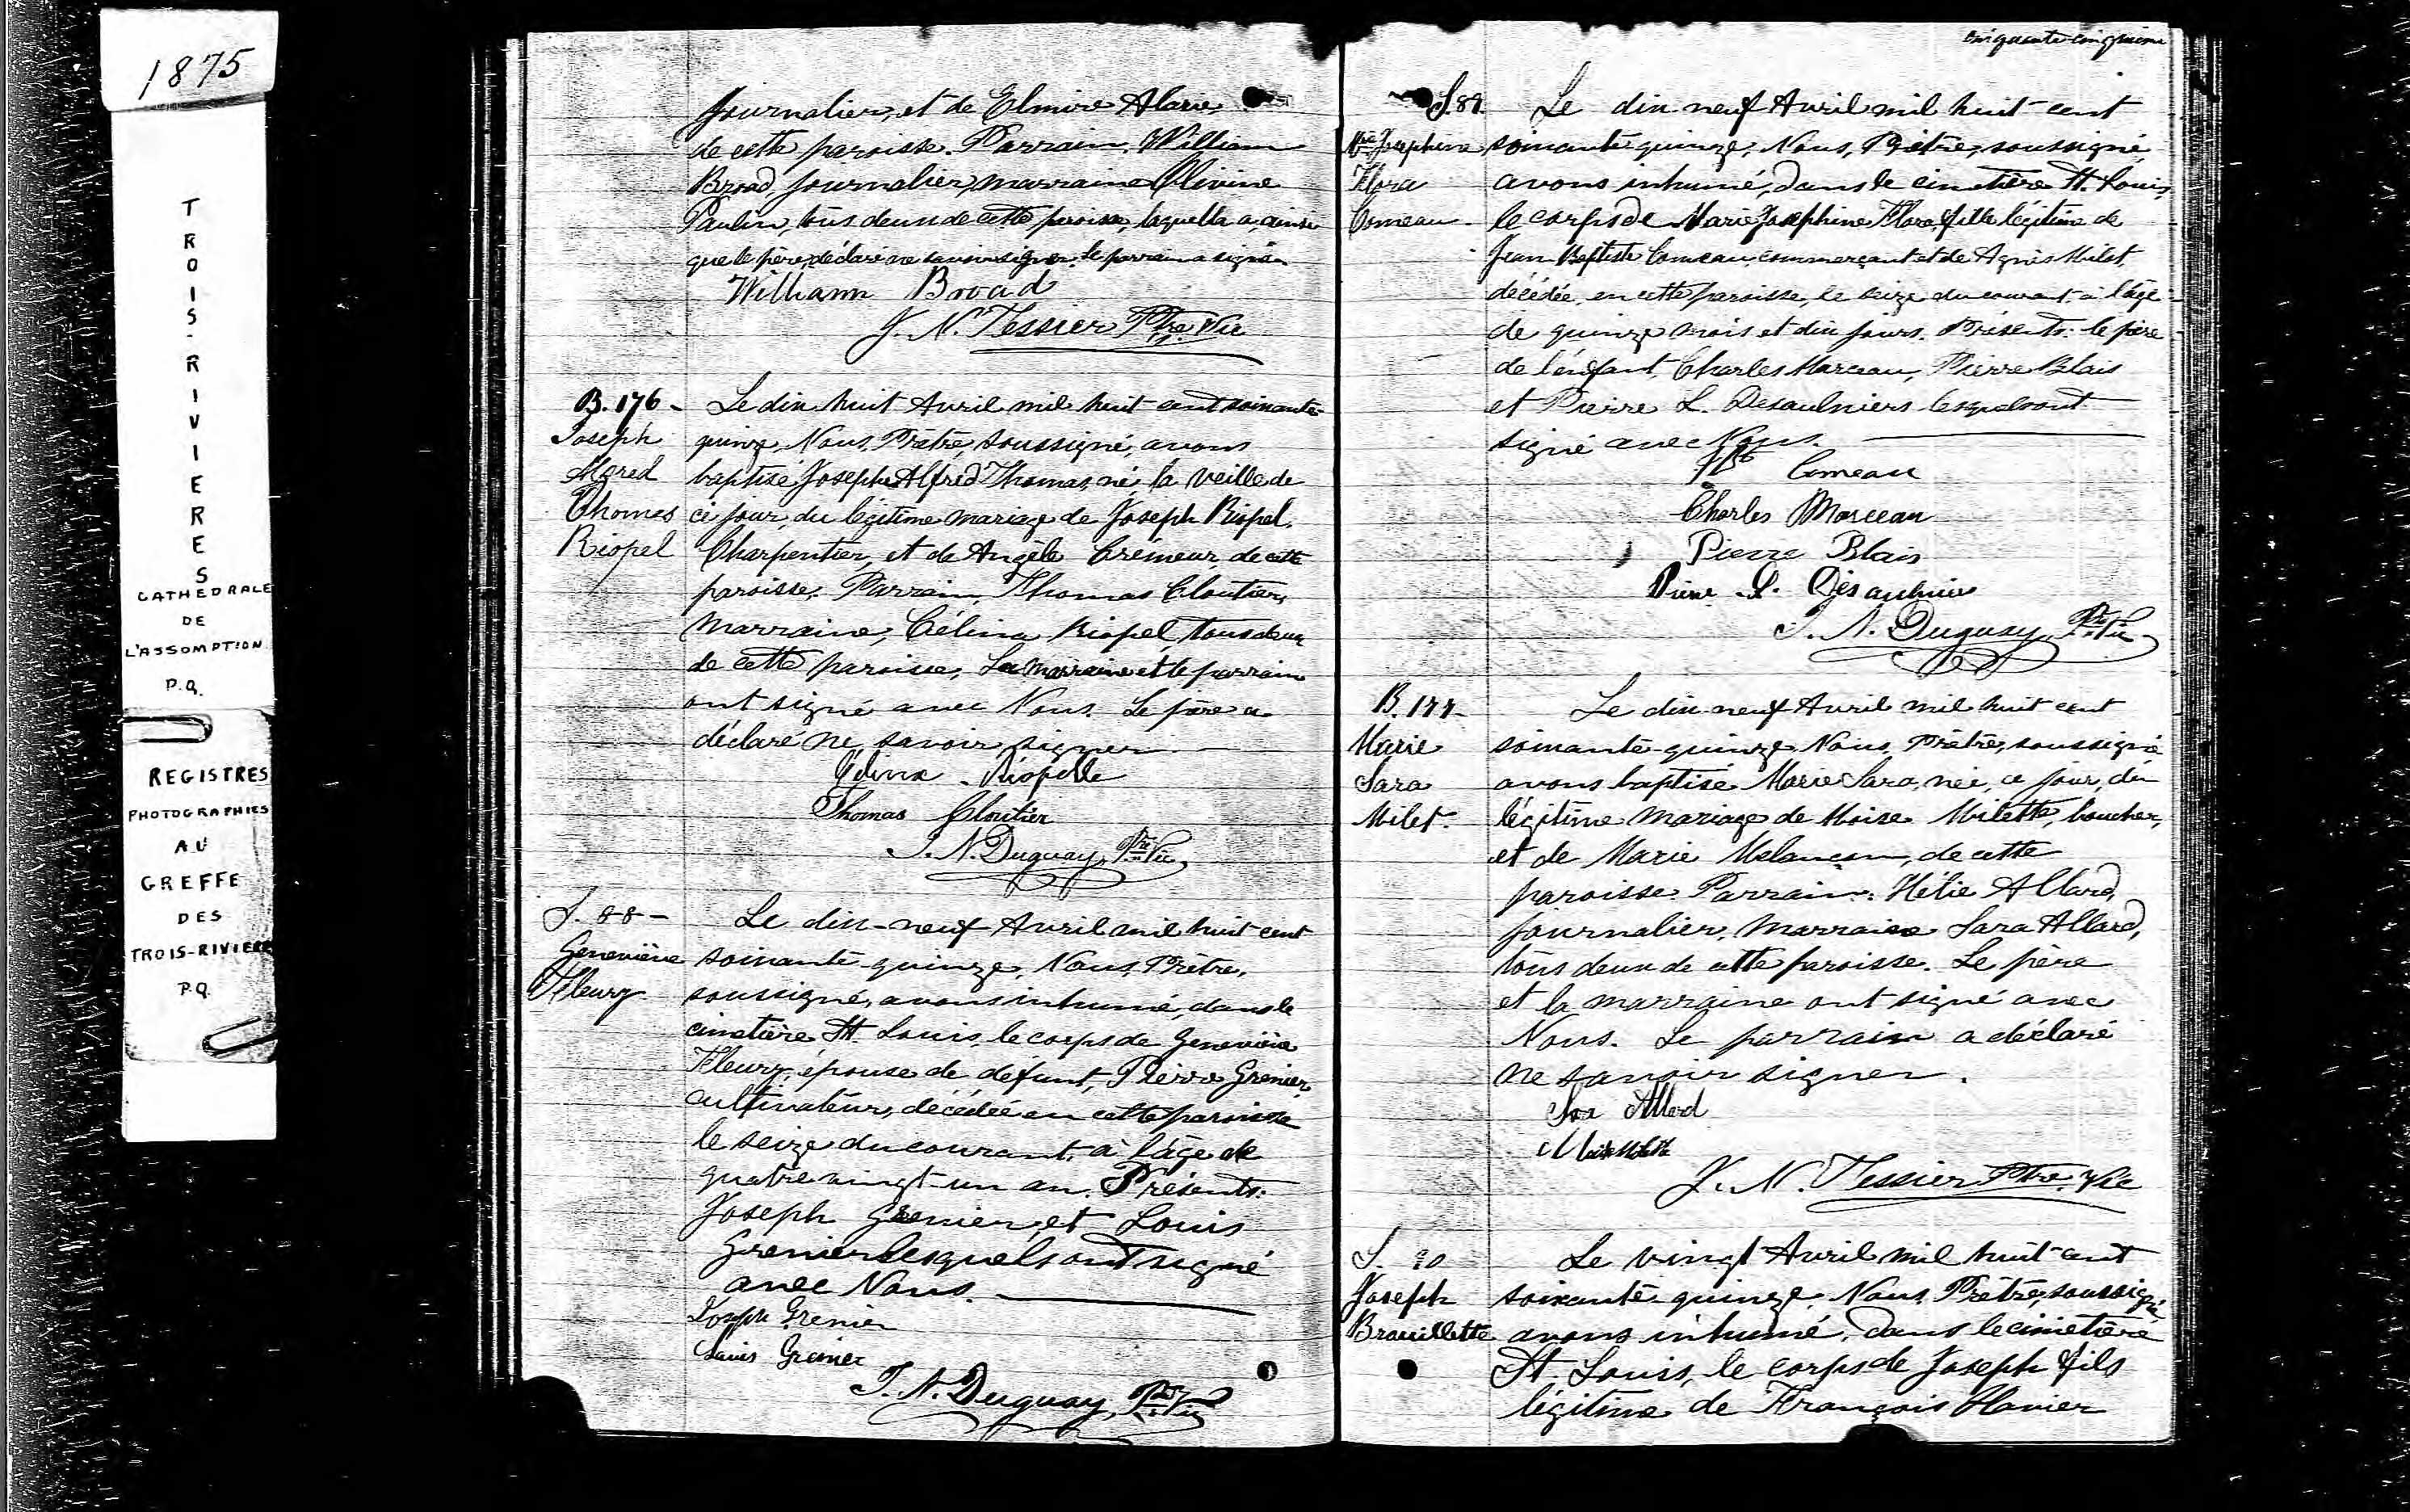 1875
TROIS-RIVIERES
CATHEDRALE
DE
L'ASSOMPTION
P.Q.
REGISTRES
PHOTOGRAPHIES
AU
GREFFE
DES
TROIS-RIVIERE
P.Q.
journalier, et de Elmire Alarie,
de cette paroisse. Parrain, William
Broad, journalier, marraine Olivine
Paulin, tous deux de cette paroisse, laquelle a, ainsi
que le père, déclaré ne savoir signer. Le parrain a signé.
William Broad
J. N. Tessier Ptre Vic
B. 176 -
Joseph
Alfred
Thomas
Riopel
Le dix huit Avril mil huit cent soixante-
quinze, Nous, Prêtre, soussigné, avons
baptisé Joseph Alfred Thomas, né la veille de
ce jour, du légitime mariage de Joseph Riopel,
Charpentier, et de Angèle Crémeur, de cette
paroisse. Parrain, Thomas Cloutier,
Marraine, Célina Riopel, tous deux
de cette paroisse. La marraine et le parrain
ont signé avec Nous. Le père a
déclaré ne savoir signer.
Célina Riopelle
Thomas Cloutier
J. N. Duguay, Ptre Vic
S. 88 -
Geneviève
Fleury
Le dix-neuf Avril mil huit cent
soixante-quinze, Nous, Prêtre,
soussigné, avons inhumé, dans le
cimetière St. Louis, le corps de Geneviève
Fleury, épouse de défunt, Pierre Grenier,
cultivateur, décédée en cette paroisse
le seize du courant, à l'âge de
quatre vingt-un an. Présents:
Joseph Grenier, et Louis
Grenier lesquels ont signé
avec Nous.
Joseph Grenier
Louis Grenier
J. N. Duguay, Ptre Vic
cinquante-cinquième
S. 89.
Mie Josephine
Flora
Comeau
Le dix neuf Avril mil huit-cent
soixante quinze, Nous, Prêtre, soussigné
avons inhumé, dans le cimetière St. Louis,
le corps de Marie Josephine Flora, fille légitime de
Jean-Baptiste Comeau, commerçant et de Agnès Milot,
décédée, en cette paroisse, le seize du courant, à l'âge
de quinze mois et dix jours. Présents: le père
de l'enfant, Charles Marceau, Pierre Blais
et Pierre L. Desaulniers lesquels ont
signé avec Nous.
JBte Comeau
Charles Marceau
Pierre Blais
Pierre L. Désaulniers
J. N. Duguay, Ptre Vic
B. 177 -
Marie
Sara
Milet
Le dix-neuf Avril mil huit cent
soixante-quinze, Nous, Prêtre, soussigné
avons baptisé Marie Sara, née, ce jour, du
légitime mariage de Moise Milette, boucher,
et de Marie Melançon, de cette
paroisse. Parrain: Hélie Allard,
journalier, Marraine Sara Allard,
tous deux de cette paroisse. Le père
et la marraine ont signé avec
Nous. Le parrain a déclaré
ne savoir signer.
Sara Allard
Moise Milette
J. N. Tessier Ptre. Vic
S. 90
Joseph
Brouillette
Le vingt Avril mil huit-cent
soixante-quinze, Nous, Prêtre, soussigné
avons inhumé, dans le cimetière
St. Louis, le corps de Joseph fils
légitime de François Xavier